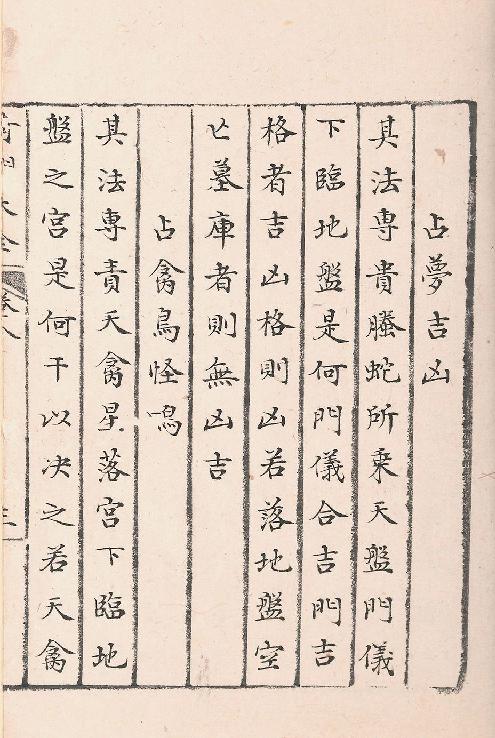 占夢吉凶
其法専貴螣蛇所乗天盤門儀
下臨地盤是何門儀合吉門吉
格者吉凶格則凶若落地盤空
亡墓庫者則無凶吉
占禽鳥怪鳴
其法専責天禽星落宮下臨地
盤之宮是何干以决之若天禽
奇門大全 卷八